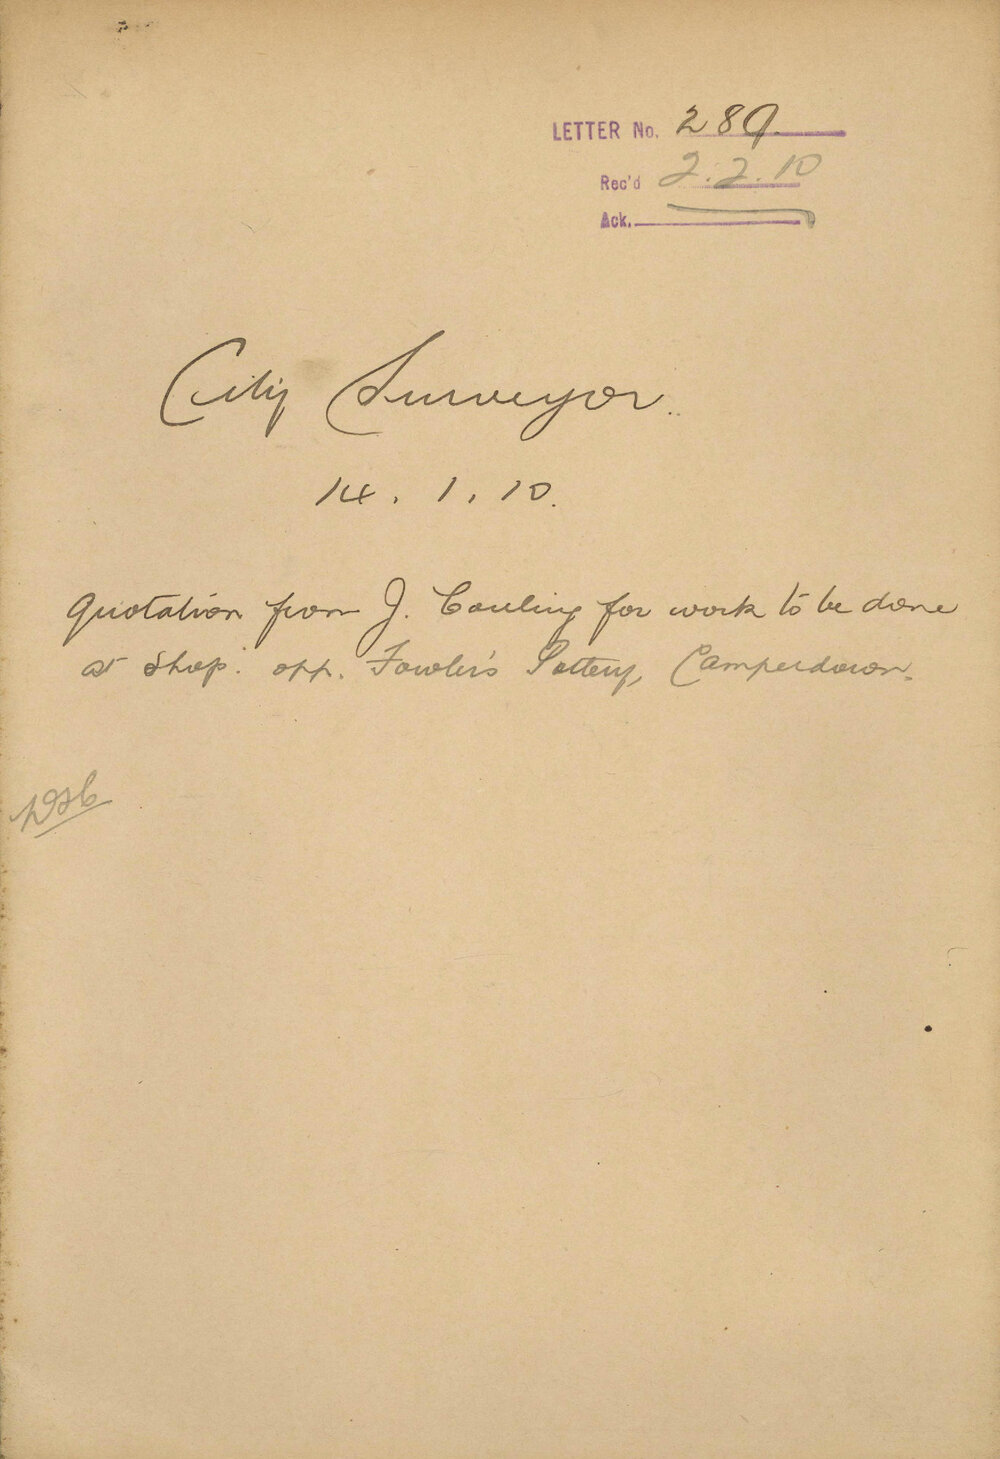 LETTER No. 289.
Rec'd 2.2.10
Ack.
City Surveyor.
14.1.10.
Quotation from J. Cowling for work to be done
at shop. opp. Fowler's Pottery, Camperdown.